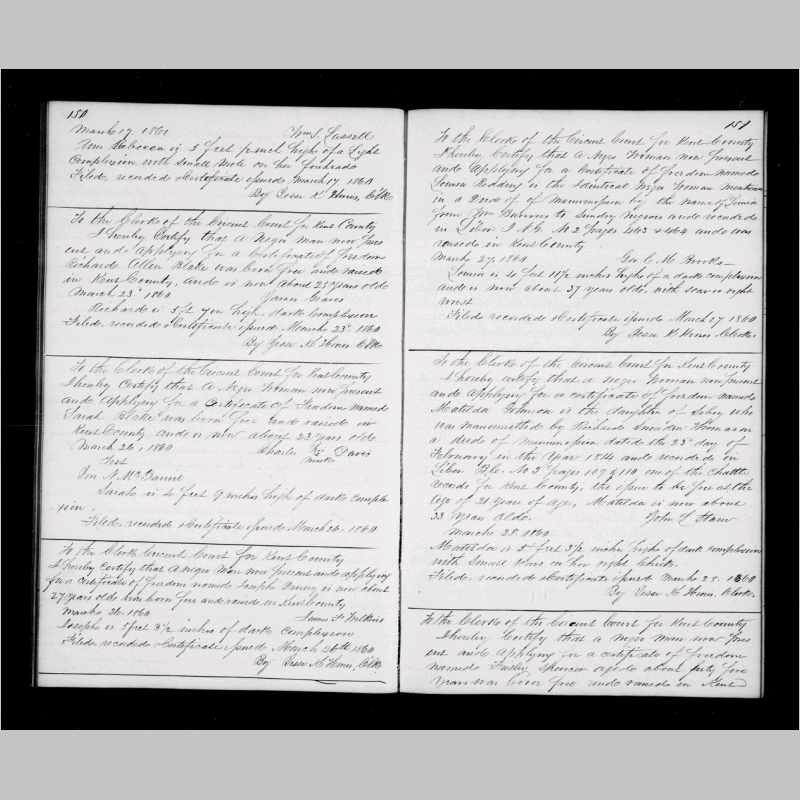 150
March 17. 1860 Wm S. Lassell
Ann Rebecca is 5 feet inch high of a Light
Complexion with small mole on her forehead
Filed, recorded & Certificate issued March 17 1860
By Jesse K. Hines, Clk
To the Clerk of the Circuit Court for Kent County
I hereby Certify that a Negro man now pres
ent and applying for a Certificate of freedom
Richard Allen Blake was born free and raised
in Kent County, and is now about 25 years old
March 23d 1860 James
Richard is 5 ft high dark Complexion
Filed, recorded & Certificate issued March 23d 1860
By Jesse K. Hines Clk
To the Clerk of the Circuit Court for Kent County
I hereby certify that a Negro Woman now present
and applying for a Certificate of freedom named
Sarah Blake was born free and raised in
Kent County and is now about 23 years old
March 26, 1860 Charles Davis
mark
Test
N. McDaniel
Sarah is 4 feet 9 inches high of dark comple
xion.
Filed, recorded & Certificate issued March 26. 1860
To the Clerk Circuit Court for Kent County
I hereby certify that a negro man now present and applying
for a certificate of freedom named Joseph is now about
27 years old him born free and raised in Kent County
March 26 1860 James F. Wilkins
Joseph is 5 feet 3 1/2 inches of dark complexion
Filed, recorded & Certificate issued March 26th 1860
By Jesse K. Hines, Clk
151
To the Clerk of the Circuit Court for Kent County
I hereby certify that a Negro Woman now present
and applying for a Certificate of freedom named
Louisa Redding is the identical negro Woman mentioned
in a Deed of Manumission by the name of Louisa
from to Sundry Negroes and recorded
in Liber J.N.G. No 2 pages 463 & 464 and was
raised in Kent County
March 27, 1860 Geo. C. M. Brooks
Louisa is 4 feet 11 1/2 inches high of a dark complexion
and is now about 37 years old, with scar on right
wrist
Filed recorded & Certificate issued March 27 1860
By Jesse K. Hines Clerk
To the Clerk of the Circuit Court for Kent County
I hereby certify that a negro Woman now present
and applying for a certificate of freedom named
Matilda Johnson is the daughter of who
was manumitted by Richard Thomas in
a deed of manumission dated the 23d day of
February in the Year 1814 and recorded in
Liber No 3 pages 109 & 110 one of the Chattle
records for Kent County, the issue to be free at the
age of 21 years of age, Matilda is now about
33 years old. John
March 28. 1860
Matilda is 5 feet 3 1/2 inches high of dark complexion
with small on her right cheek.
Filed, recorded & Certificate issued March 28. 1860
By Jesse K. Hines, Clerk
To the Clerk of the Circuit Court for Kent County
I hereby Certify that a negro man now pres
ent and applying for a certificate of freedom
named Spencer aged about forty five
years was born free and raised in Kent